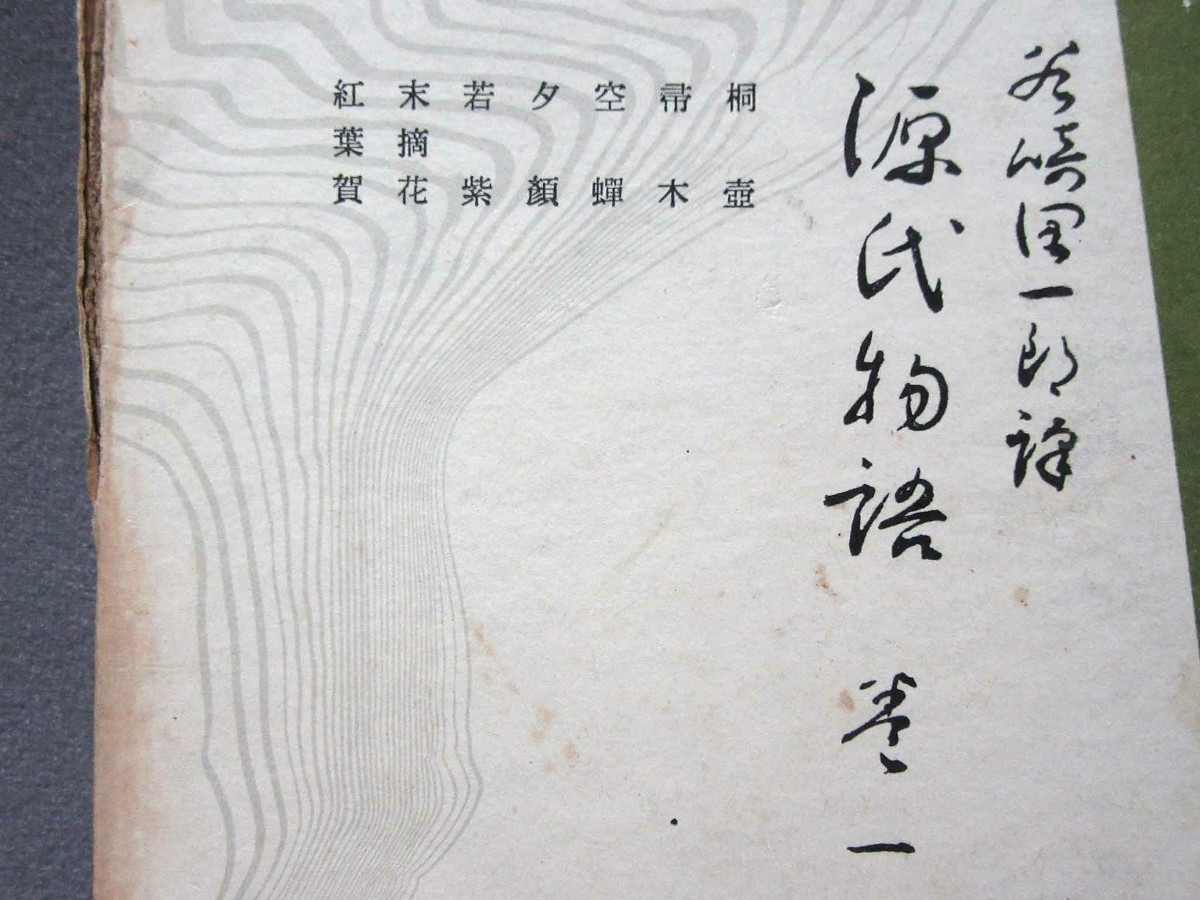 谷崎潤一郎譯
源氏物語 卷一
桐壺
帚木
空蟬
夕顏
若紫
末摘花
紅葉賀